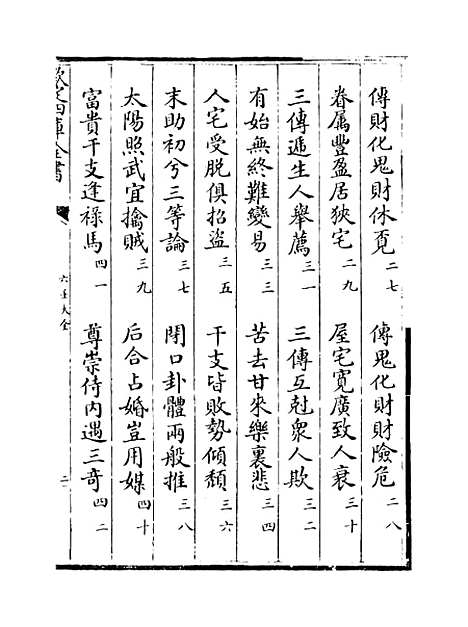 傳財化鬼財休覔二七　傳鬼化財財險危二八
眷属豐盈居狹宅二九　屋宅寛廣致人衰三十
三傳遞生人舉薦三一　三傳互尅衆人欺三二
有始無終難變易三三　苦去甘來樂裏悲三四
人宅受脱俱招盗三五　干支皆敗勢傾頽三六
末助初兮三等論三七　閉口卦體兩般推三八
太陽照武宜擒賊三九　后合占婚豈用媒四十
富貴干支逢禄馬四一　尊崇侍内遇三奇四二
欽定四庫全書
六壬大全
二